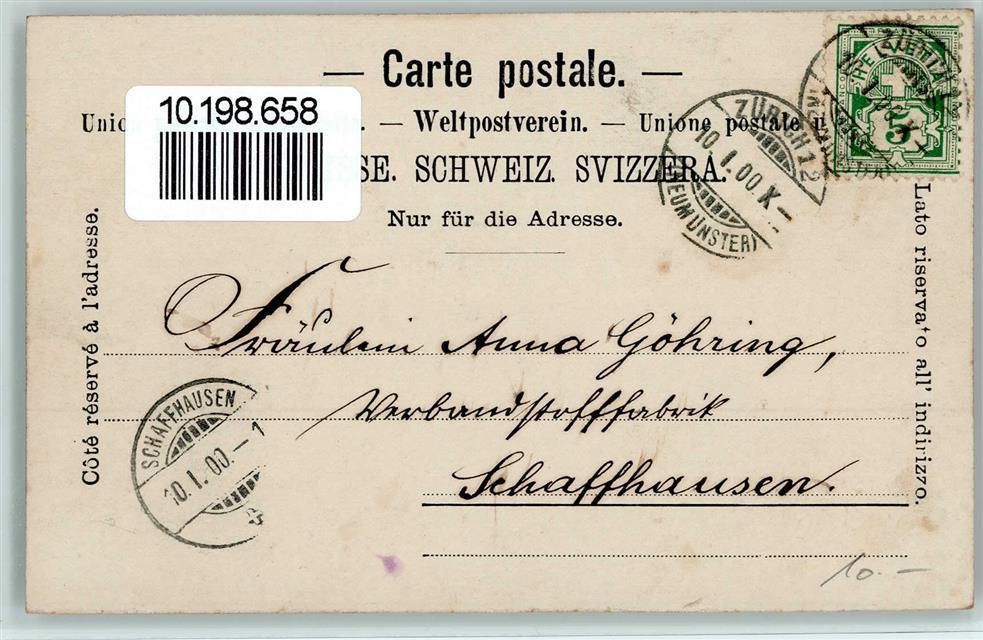 — Carte postale. —
10.198.658
— Weltpostverein. — Unione postale
SCHWEIZ. SVIZZERA.
Nur für die Adresse.
Côté réservé à l'adresse.
Lato riservato all' indirizzo.
ZÜRICH 12
10.I.00.X-
(NEUMÜNSTER)
5
Fräulein Anna Göhring,
Verbandstofffabrik
Schaffhausen.
SCHAFFHAUSEN
10.I.00.-1
10.-